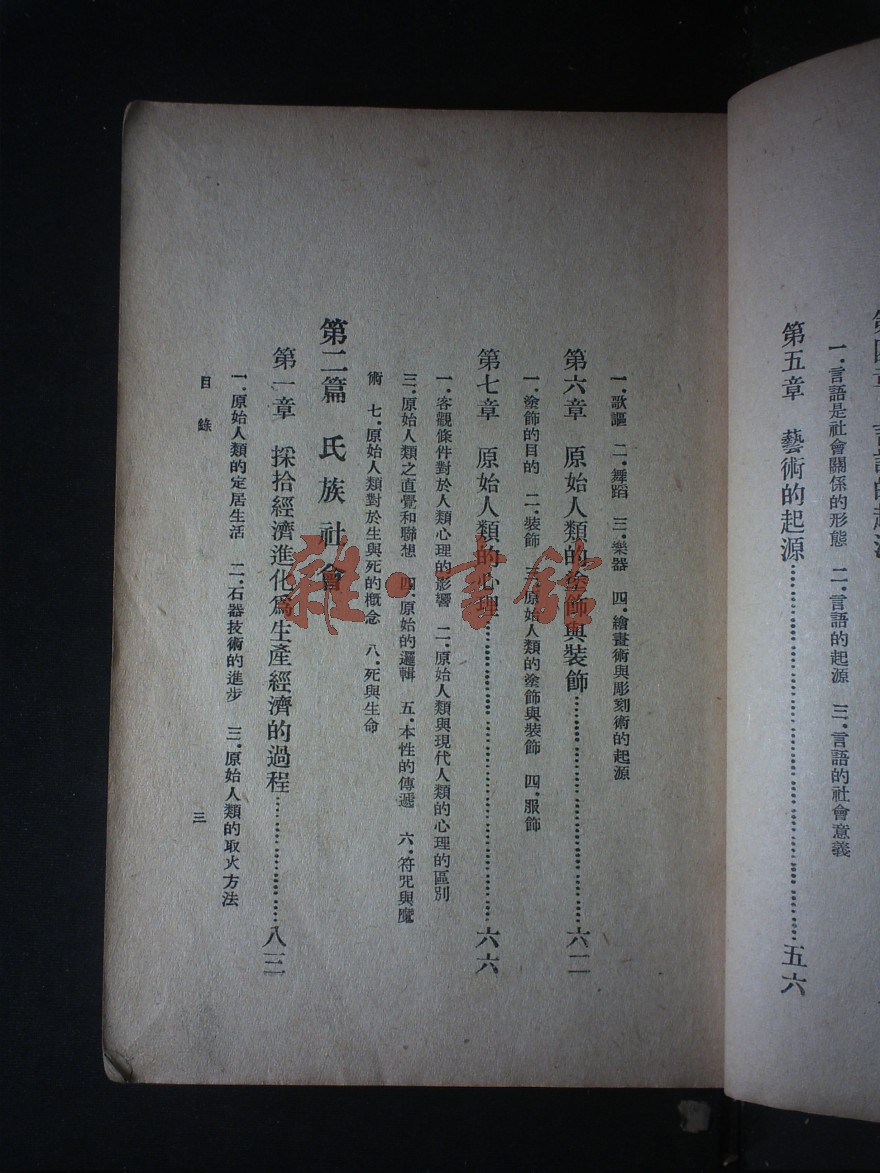 一．言語是社會關係的形態　二．言語的起源　三．言語的社會意義
第五章　藝術的起源……五六
一．歌謳　二．舞蹈　三．樂器　四．繪畫術與彫刻術的起源
第六章　原始人類的塗飾與裝飾……六二
一．塗飾的目的　二．裝飾　三．原始人類的塗飾與裝飾　四．服飾
第七章　原始人類的心理……六六
一．客觀條件對於人類心理的影響　二．原始人類與現代人類的心理的區別
三．原始人類之直覺和聯想　四．原始的邏輯　五．本性的傳遞　六．符咒與魔
術　七．原始人類對於生與死的概念　八．死與生命
第二篇　氏族社會
第一章　採拾經濟進化爲生產經濟的過程……八三
一．原始人類的定居生活　二．石器技術的進步　三．原始人類的取火方法
目錄　三
雜·書館